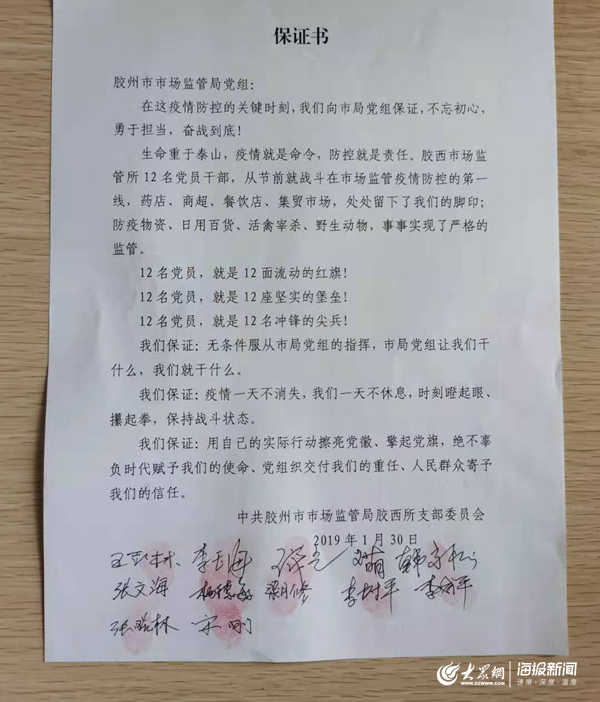 保证书
胶州市市场监管局党组:
在这疫情防控的关键时刻,我们向市局党组保证,不忘初心,
勇于担当,奋战到底!
生命重于泰山,疫情就是命令,防控就是责任。胶西市场监
管所12名党员干部,从节前就战斗在市场监管疫情防控的第一
线,药店、商超、餐饮店、集贸市场,处处留下了我们的脚印;
防疫物资、日用百货、活禽宰杀、野生动物,事事实现了严格的
监管。
12名党员,就是12面流动的红旗!
12名党员,就是12座坚实的堡垒!
12名党员,就是12名冲锋的尖兵!
我们保证:无条件服从市局党组的指挥,市局党组让我们干
什么,我们就干什么。
我们保证:疫情一天不消失,我们一天不休息,时刻瞪起眼、
攥起拳,保持战斗状态。
我们保证:用自己的实际行动擦亮党徽、擎起党旗,绝不辜
负时代赋予我们的使命、党组织交付我们的重任、人民群众寄予
我们的信任。
中共胶州市市场监管局胶西所支部委员会
2019年1月30日
张文海 李树平
张晓林 宋刚
大众网 WWW.DZWWW.COM 海报新闻
速度·深度·温度